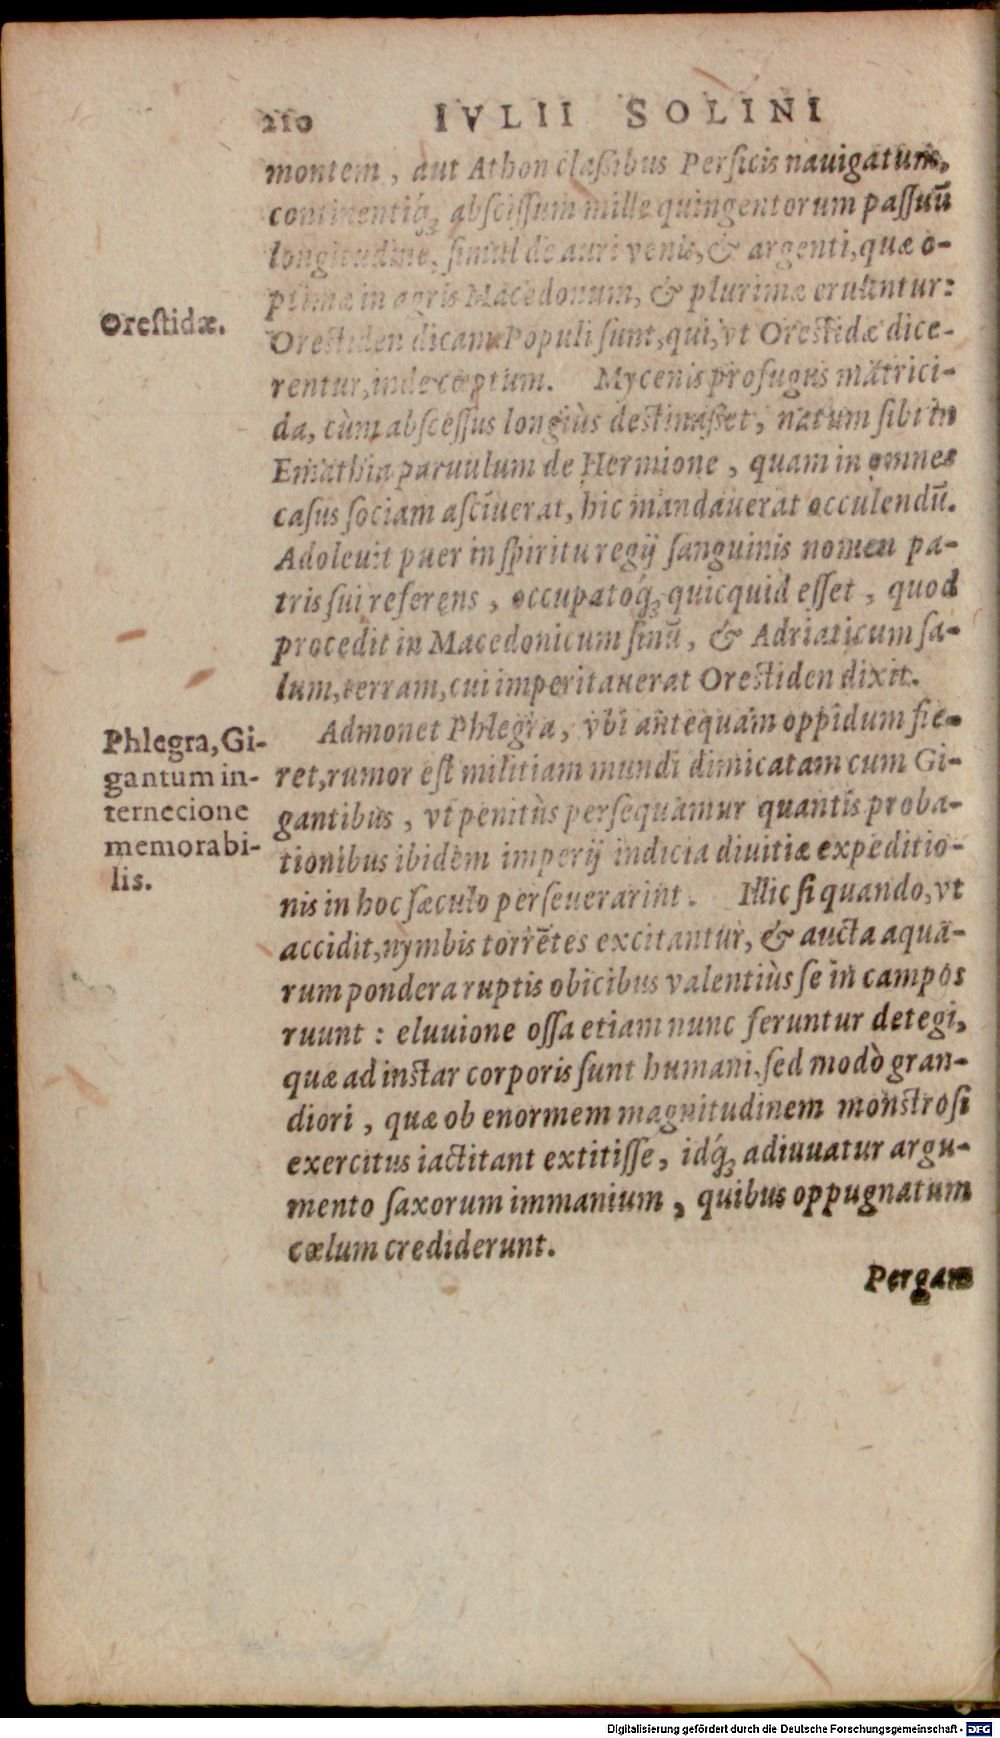 210 IVLII SOLINI
montem, aut Athon claſsibus Perſicis nauigatum,
continentiq́; abſciſſum mille quingentorum paſſuū
longitudine, ſimul de auri venis, & argenti, quæ o-
ptima in agris Macedonum, & plurimæ eruuntur:
Oreſtiden dicam. Populi ſunt, qui, vt Oreſtidæ dice-
rentur, inde cœptum. Mycenis profugus matrici-
da, cùm abſceſſus longiùs deſtinaſſet, natum ſibi in
Emathia paruulum de Hermione, quam in omnes
caſus ſociam aſciuerat, hic mandauerat occulendū.
Adoleuit puer in ſpiritu regij ſanguinis nomen pa-
tris ſui referens, occupatoq́; quicquid eſſet, quod
procedit in Macedonicum ſinū, & Adriaticum ſa-
lum, terram, cui imperitauerat Oreſtiden dixit.
Oreſtidæ.
Admonet Phlegra, vbi antequam oppidum fie-
ret, rumor eſt militiam mundi dimicatam cum Gi-
gantibus, vt penitùs perſequamur quantis proba-
tionibus ibidem imperij indicia diuitiæ expeditio-
nis in hoc ſæculo perſeuerarint. Illic ſi quando, vt
accidit, nymbis torrētes excitantur, & aucta aqua-
rum pondera ruptis obicibus valentiùs ſe in campos
ruunt: eluuione oſſa etiam nunc feruntur detegi,
quæ ad inſtar corporis ſunt humani, ſed modò gran-
diori, quæ ob enormem magnitudinem monſtroſi
exercitus iactitant extitiſſe, idq́; adiuuatur argu-
mento ſaxorum immanium, quibus oppugnatum
cœlum crediderunt.
Phlegra, Gi-
gantum in-
ternecione
memorabi-
lis.
Pergam
Digitalisierung gefördert durch die Deutsche Forschungsgemeinschaft - DFG